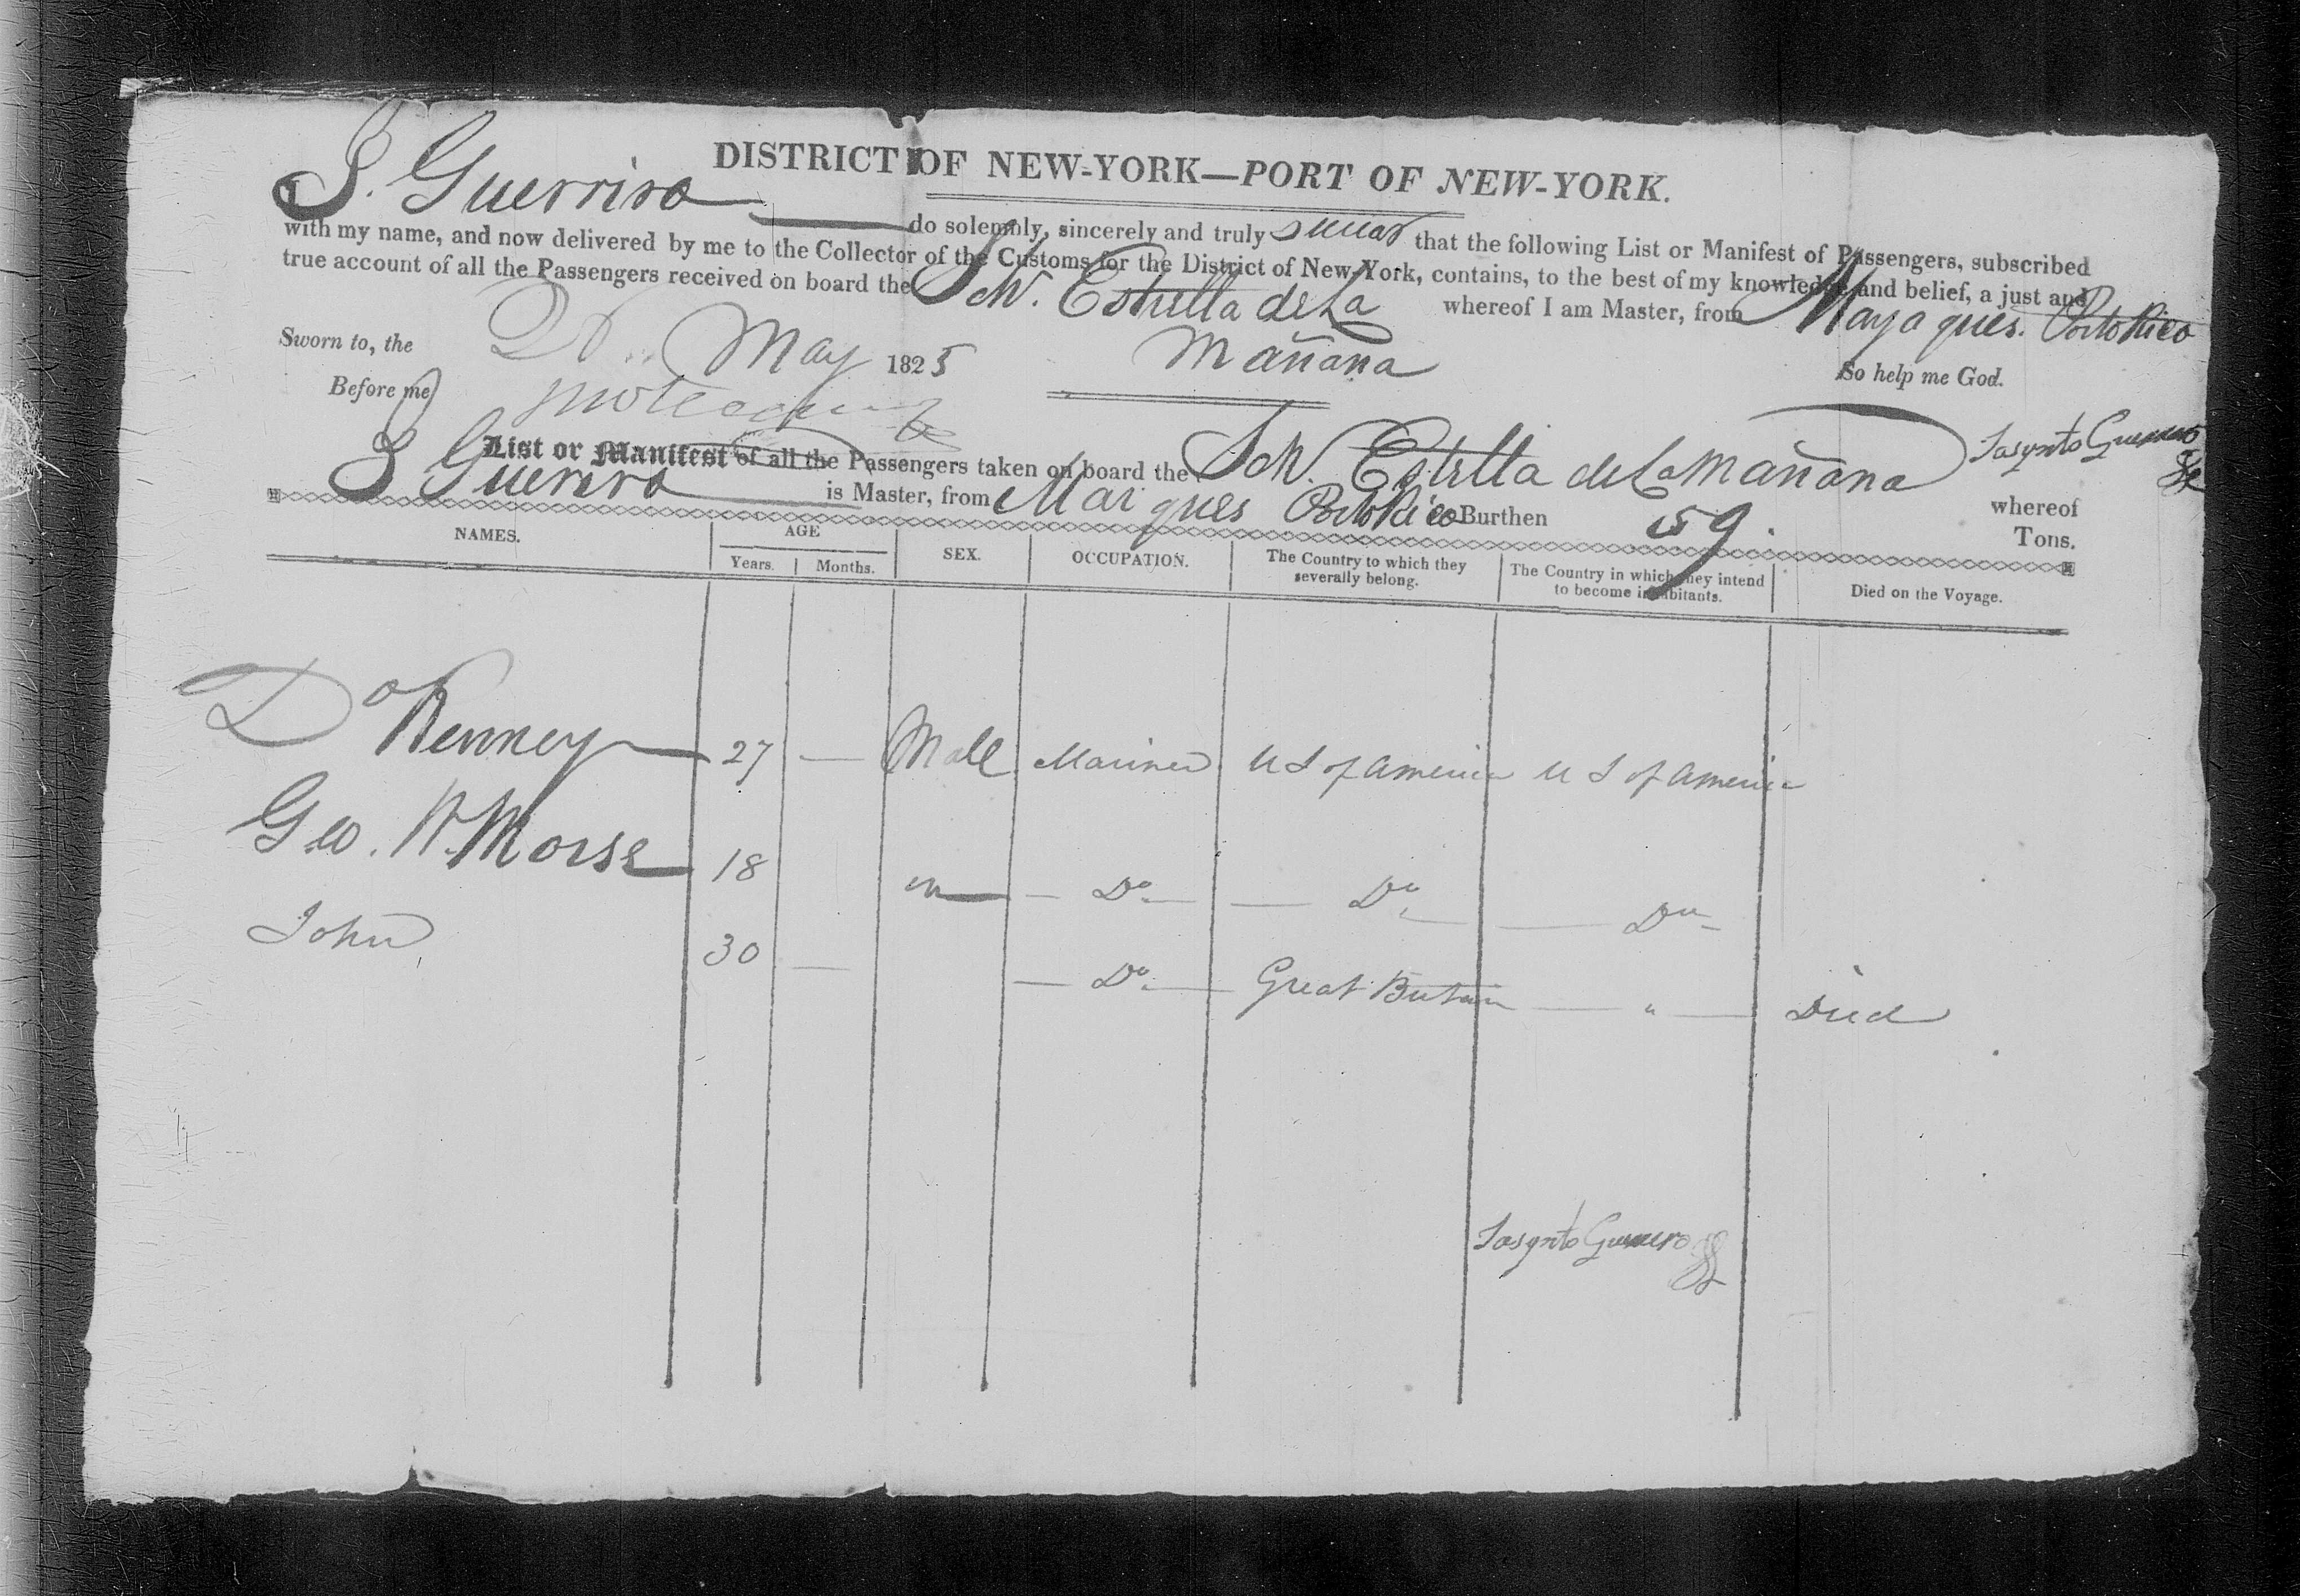 DISTRICT OF NEW-YORK—PORT OF NEW-YORK.
I J. Guerriro do solemnly, sincerely and truly swear that the following List or Manifest of Passengers, subscribed
with my name, and now delivered by me to the Collector of the Customs for the District of New-York, contains, to the best of my knowledge and belief, a just and
true account of all the Passengers received on board the Sch. Estrella de La whereof I am Master, from Mayagues. Porto Rico
Mañana
Sworn to, the May 1825
So help me God.
Before me
Jasynto Guerrero
List or Manifest of all the Passengers taken on board the Sch. Estrella de La Mañana whereof
J Guerrero is Master, from Maigues Porto Rico Burthen 59. Tons.
NAMES. AGE SEX. OCCUPATION. The Country to which they severally belong. The Country in which they intend to become inhabitants. Died on the Voyage.
Years. Months.
Kenney 27 — Male Mariner U S of America U S of America
Geo. W. Morse 18 m Do Do Do
John 30 — Do Great Britain " Died
Jasynto Guerrero